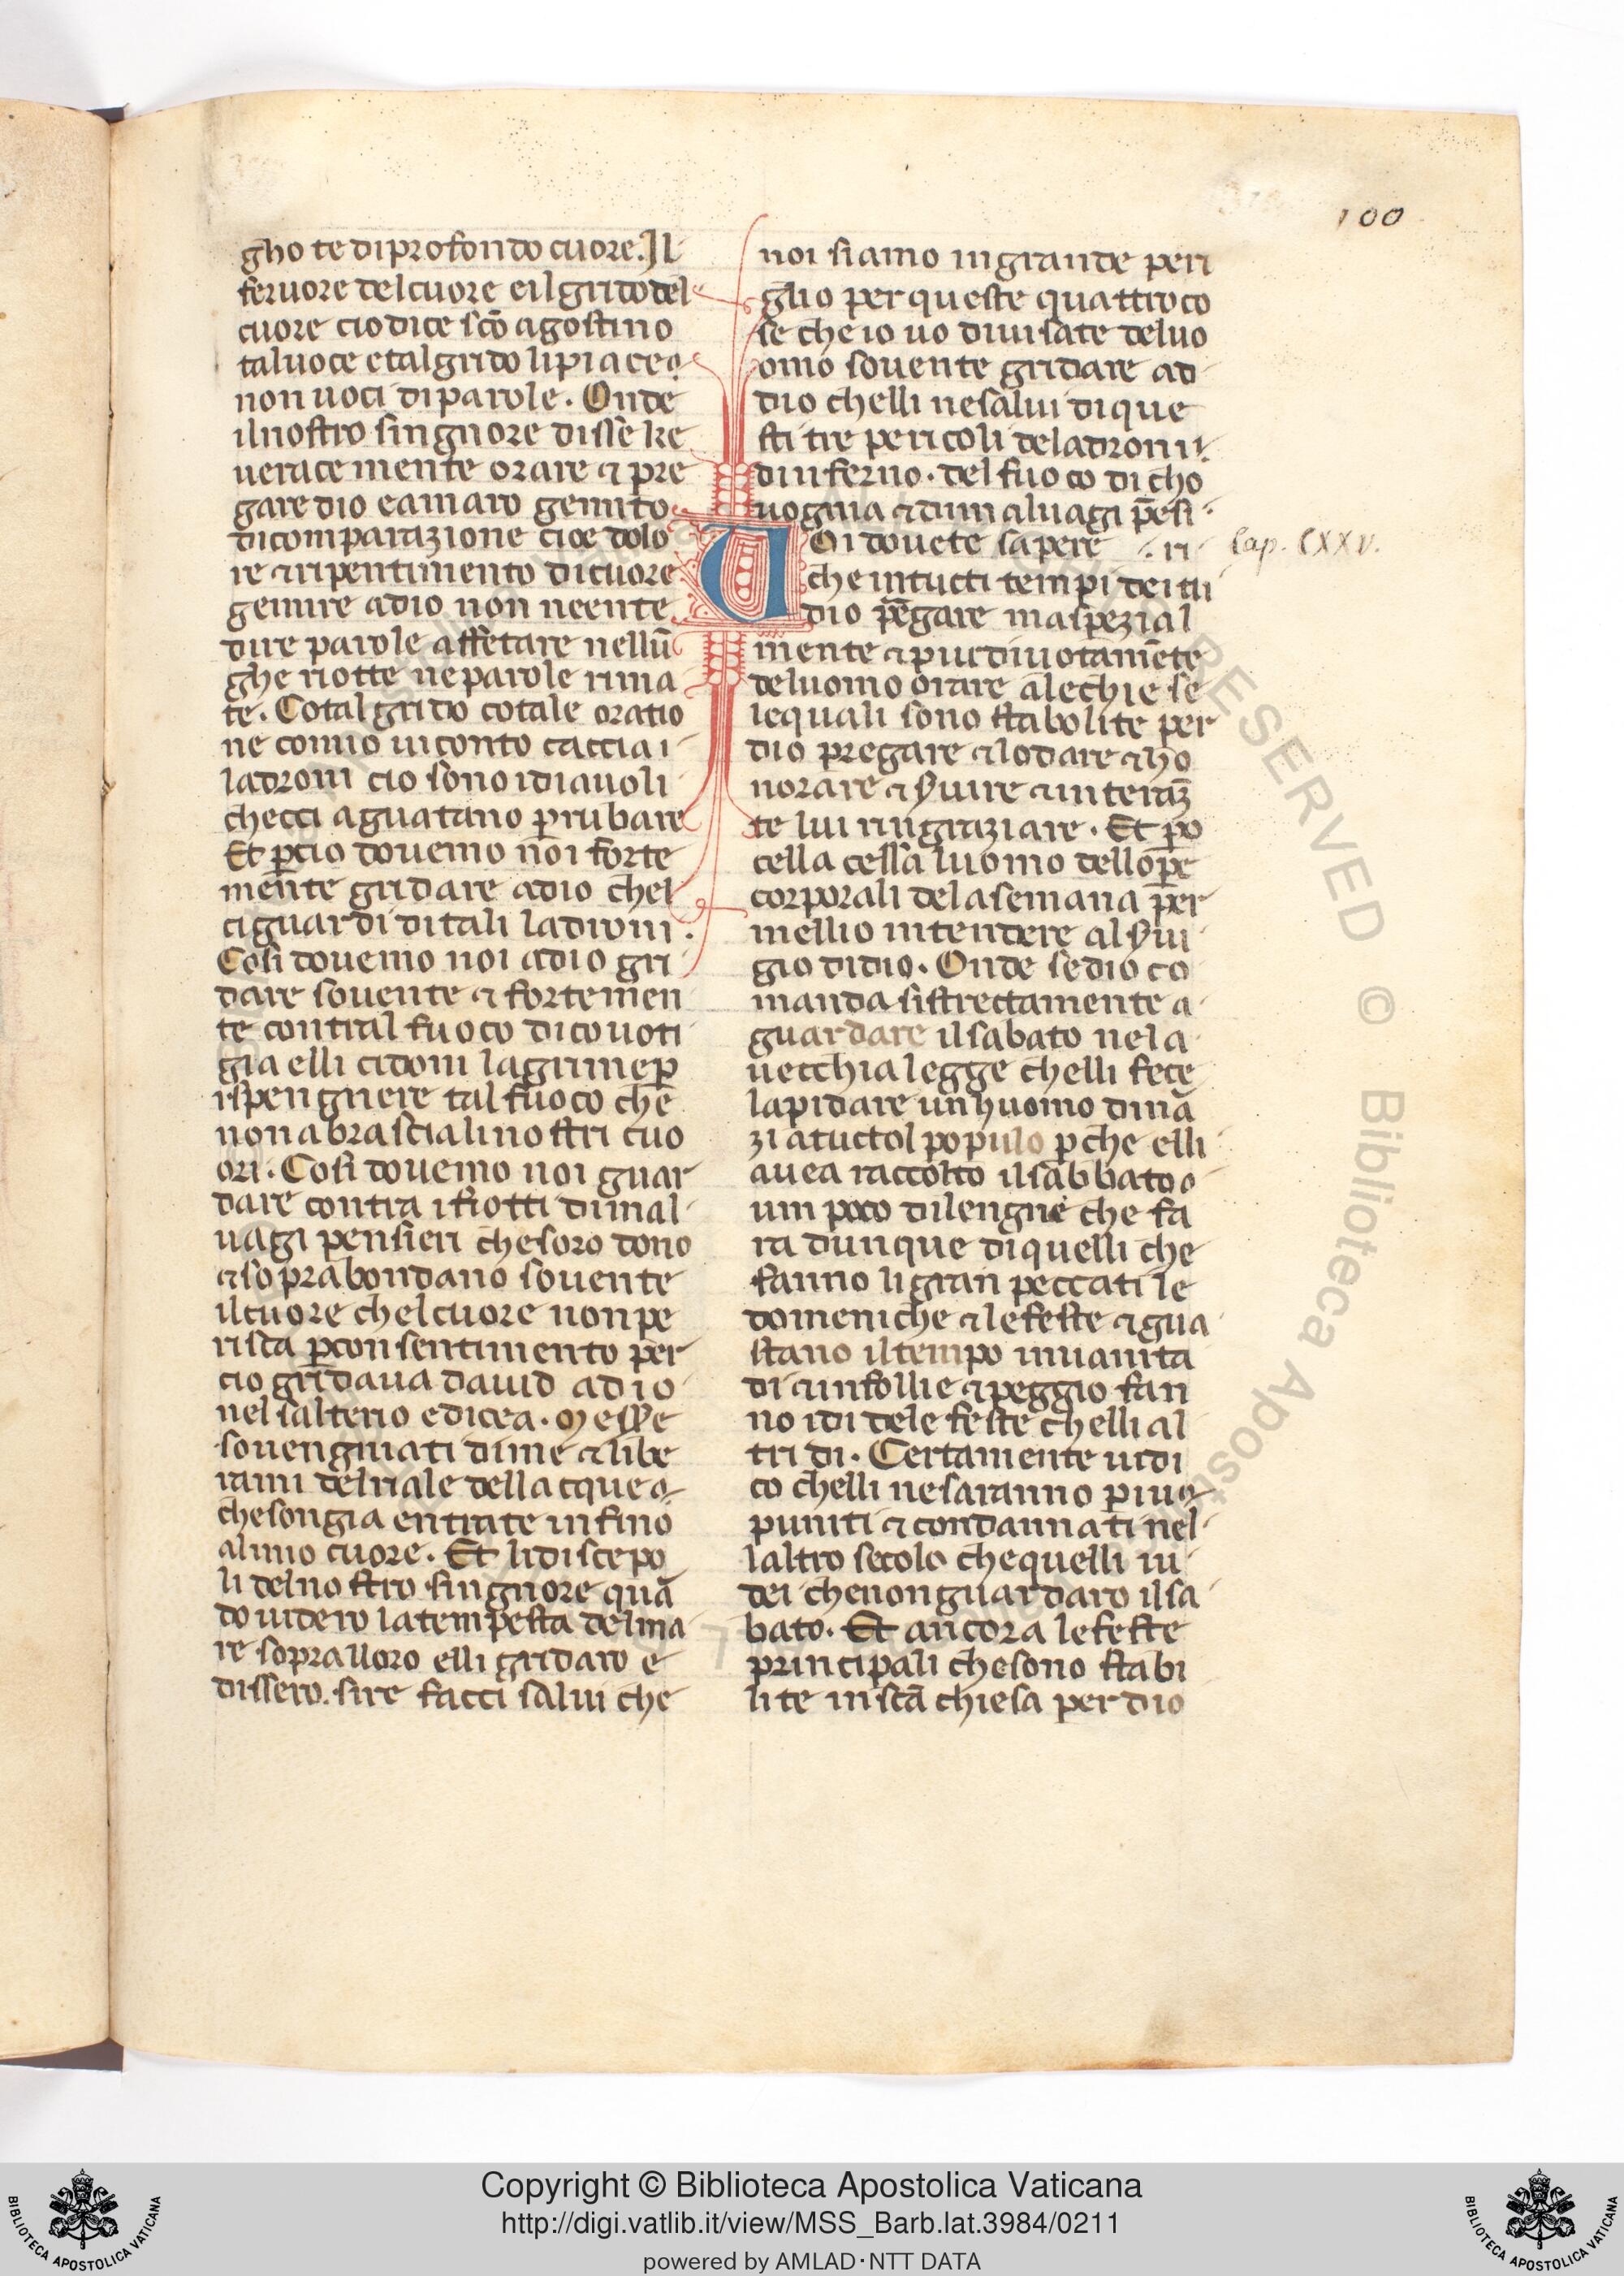 100
gho te diprofondo cuore. Il
feruore delcuore eilgridodel
cuore cio dice sc̄o agostino
taluoce etalgrido lipiaceo
non uoci diparole. Onde
ilnostro singnore disse ke
uerace mente orare ⁊ pre
gare dio eamaro gemito
dicomparazione cioe dolo
re ⁊ripentimento dicuore
gemire adio non neente
dire parole affetare nellū
ghe riotte neparole rima
te. Cotal grido cotale oratio
ne comio uiconto caccia i
ladroni cio sono idiauoli
checci aguatano ꝑrubare
Et ꝑcio douemo noi forte
mente gridare adio chel
ciguardi ditali ladroni.
Cosi douemo noi adio gri
dare souente ⁊ fortemen
te contral fuoco dicouoti
gia elli cidoni lagrimeꝑ
ispengnere tal fuoco che
non abrasciali nostri cuo
ori. Cosi douemo noi guar
dare contra i fiotti dimal
uagi pensieri chesoro dono
⁊soprabondano souente
ilcuore chelcuore non pe
risca ꝑconsentimento per
cio gridaua dauid adio
nel salterio edicea. Messe
souengniati dime ⁊ libe
rami delriale dellacque
chesongia entrate infino
almio cuore. Et lidiscepo
li delnostro singnore quā
do uidero latempesta delma
re sopralloro elli gridaro e
dissero. sire facci salui che
noi siamo ingrande peri
glio per queste quattro co
se che io uo diuisate deluo
omo souente gridare ad
dio chelli nesalui dique
sti tre pericoli deladroni
dinferno. del fuoco di cho
uogna ⁊dimaluagi pēsi
Uoi douete sapere .ri
che intucti tempi dei tu
dio p̄gare maspezial
mente ⁊piudiuotamēte
deluomo orare alechiese
lequali sono stabolite per
dio pregare ⁊lodare ⁊ho
norare ⁊ ẜuire ⁊interam̄
te lui ringraziare. Et ꝑo
cella cessa luomo dellopē
corporali delasemana per
mellio intendere al ẜui
gio didio. Onde sedio co
manda sistrectamente a
guardare ilsabato nela
uecchialegge chelli fece
lapidare un huomo dinā
zi atuctol populo ꝑche elli
auea raccolto ilsabbato
um poco dilengne che fa
ra dunque diquelli che
fanno ligran peccati le
domeniche ⁊lefeste ⁊gua
stano iltempo inuanita
di ⁊infollie ⁊peggio fan
no idi dele feste chelli al
tri di. Certamente uidi
co chelli nesaranno piuo
puniti ⁊ condannati nel
laltro secolo chequelli iu
dei chenonguardaro ilsa
bato. Et ancora lefeste
principali chesono stabi
lite insc̄a chiesa perdio
Cap. CXXV.
Copyright © Biblioteca Apostolica Vaticana
http://digi.vatlib.it/view/MSS_Barb.lat.3984/0211
powered by AMLAD·NTT DATA
BIBLIOTECA APOSTOLICA VATICANA
BIBLIOTECA APOSTOLICA VATICANA